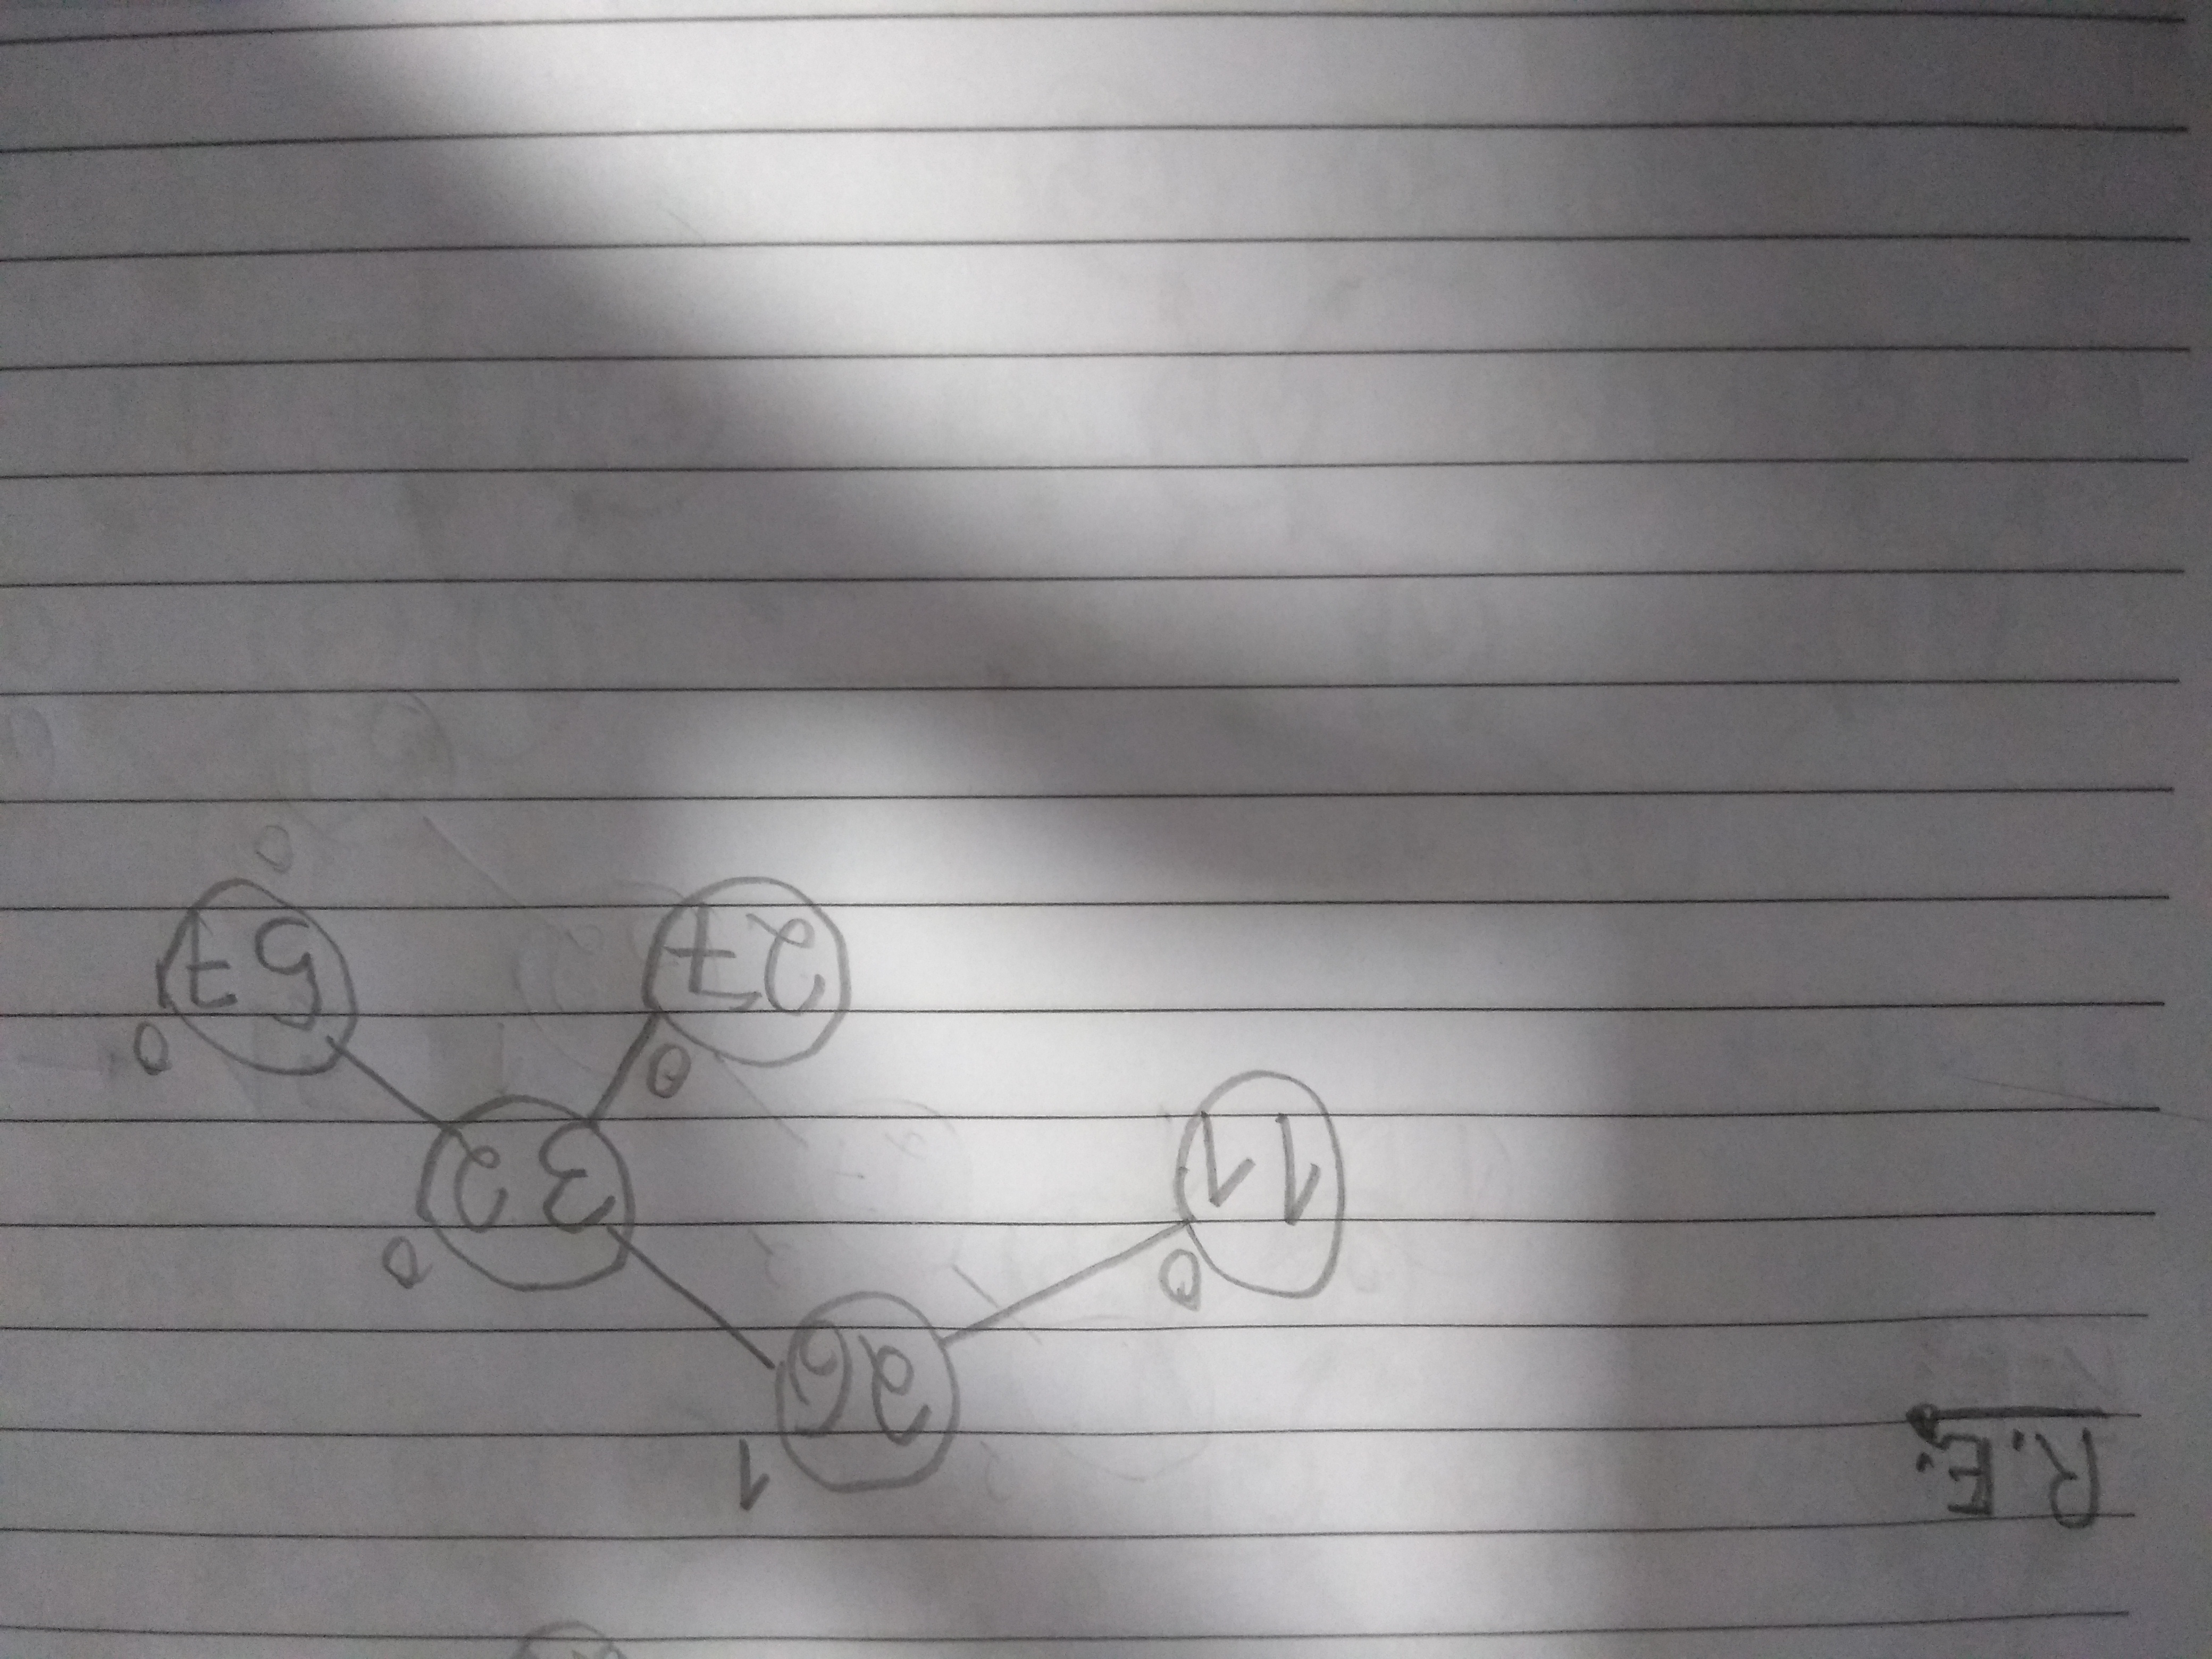 R.E:
26 1
11 0
32 0
27 0
57 0
0